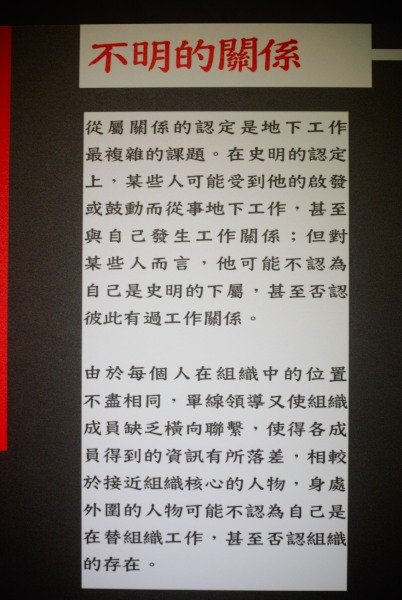 不明的關係
從屬關係的認定是地下工作
最複雜的課題。在史明的認定
上，某些人可能受到他的啟發
或鼓動而從事地下工作，甚至
與自己發生工作關係；但對
某些人而言，他可能不認為
自己是史明的下屬，甚至否認
彼此有過工作關係。
由於每個人在組織中的位置
不盡相同，單線領導又使組織
成員缺乏橫向聯繫，使得各成
員得到的資訊有所落差，相較
於接近組織核心的人物，身處
外圍的人物可能不認為自己是
在替組織工作，甚至否認組織
的存在。